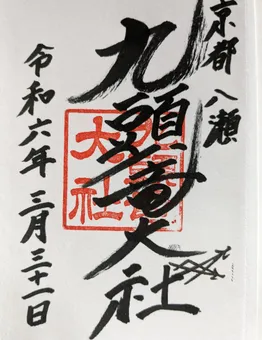 京都 八瀬
九頭竜大社
令和六年 三月 三十一日
九頭竜大社